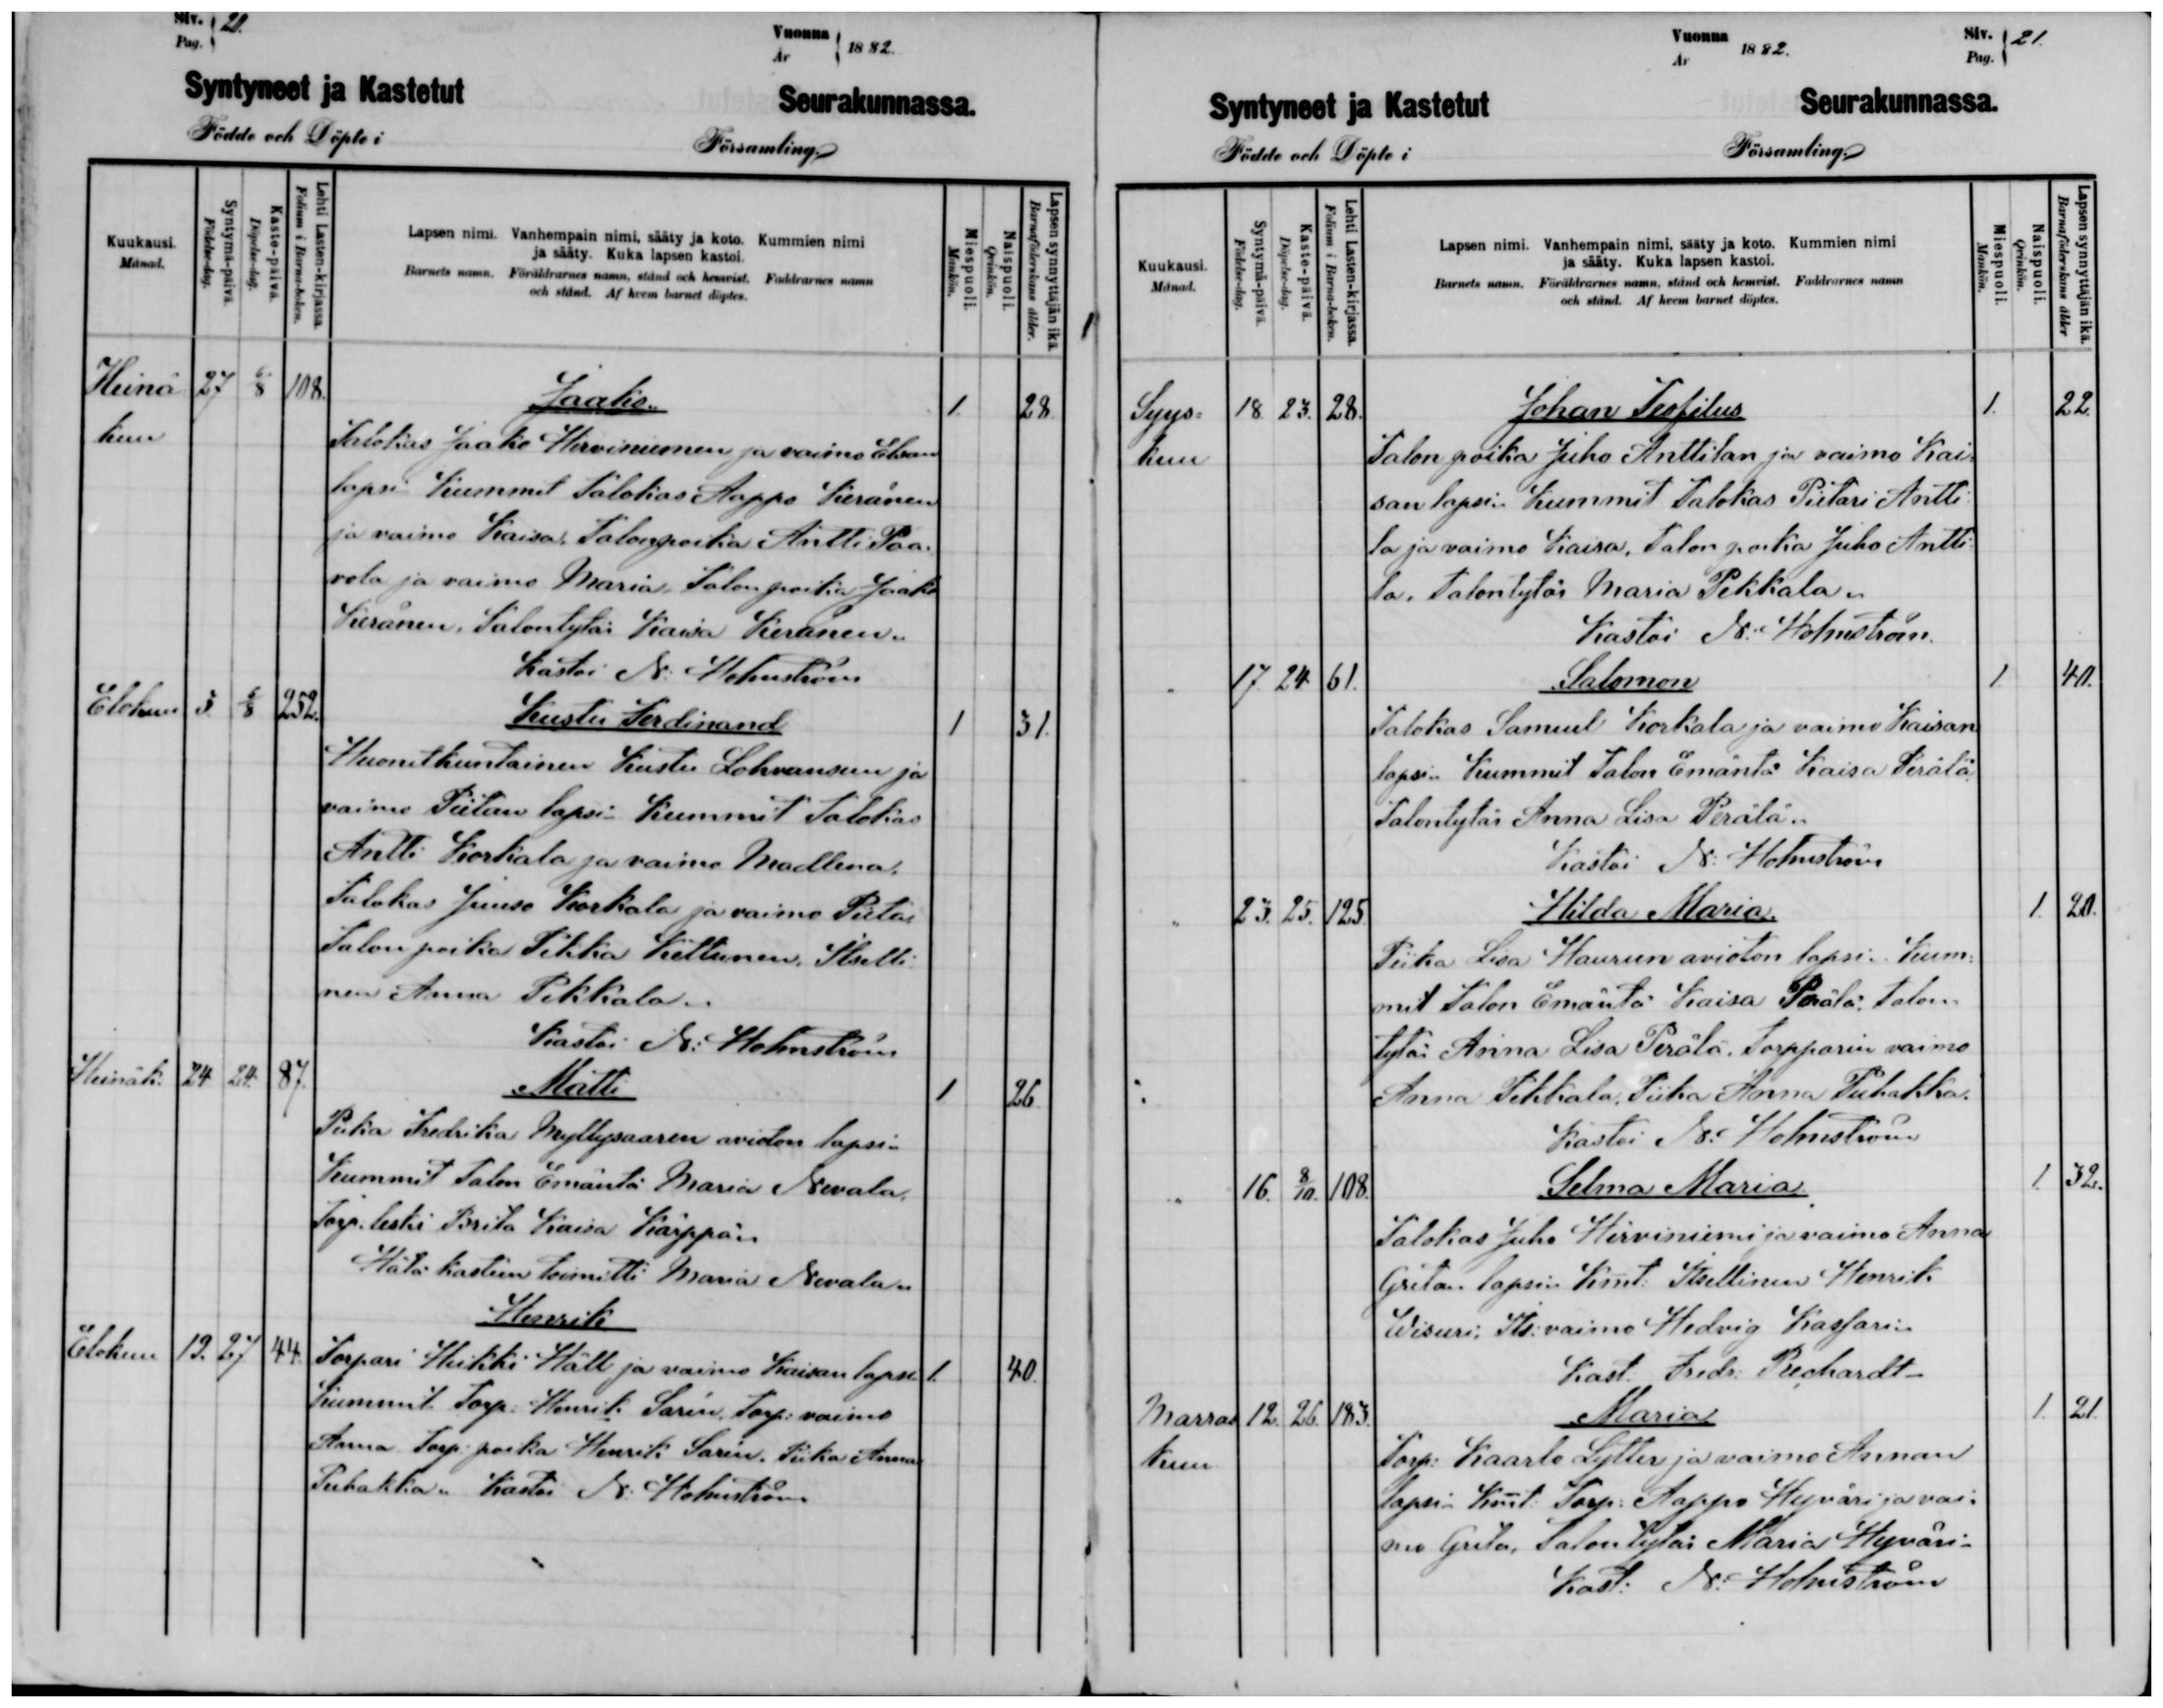 Siv. 20.
Pag.
Vuonna 1882.
År
Syntyneet ja Kastetut Seurakunnassa.
Födde och Döpte i Församling.
Kuukausi.
Månad.
Syntymä-päivä.
Födelse-dag.
Kaste-päivä.
Döpelse-dag.
Lehti Lasten-kirjassa.
Folium i Barna-boken.
Lapsen nimi. Vanhempain nimi, sääty ja koto. Kummien nimi
ja sääty. Kuka lapsen kastoi.
Barnets namn. Föräldrarnes namn, stånd och hemvist. Faddrarnes namn
och stånd. Af hvem barnet döptes.
Miespuoli.
Mankön.
Naispuoli.
Qvinkön.
Lapsen synnyttäjän ikä.
Barnaföderskans ålder.
Heinä 27 6/8 108. Jaako 1. 28.
kuu
Talokas Jaako Hirviniemen ja vaimo Elsan
lapsi Kummit Talokas Aappo Keränen
ja vaimo Kaisa, Talonpoika Antti Paa-
vola ja vaimo Maria, Talonpoika Jaako
Keränen, Talontytär Kaisa Keränen..
Kastoi N: Holmström
Elokuu 5 6/8 252. Kustu Ferdinand 1 31.
Huonetkuntainen Kustu Lohvansuun ja
vaimo Piitan lapsi- Kummit Talokas
Antti Korkala ja vaimo Madlena,
Talokas Juuso Korkala ja vaimo Piita
Talonpoika Pekka Kettunen, Itselli-
nen Anna Pekkala..
Kastoi N: Holmström
Heinäk. 24 24. 87. Matti 1 26.
Piika Fredrika Myllysaaren avioton lapsi-
Kummit Talon Emäntä Maria Nevala,
Torp. leski Brita Kaisa Kärppä..
Hätä kasteen toimitti Maria Nevala..
Henrik
Elokuu 12. 27 44. Torpari Heikki Häll ja vaimo Kaisan lapsi 1. 40.
Kummit Torp. Henrik Sarén, Torp: vaimo
Anna Torp. poika Henrik Sarén, Piika Anna
Puhakka.. Kastoi N: Holmström
Vuonna 1882.
År
Siv. 21.
Pag.
Syntyneet ja Kastetut Seurakunnassa.
Födde och Döpte i Församling.
Kuukausi.
Månad.
Syntymä-päivä.
Födelse-dag.
Kaste-päivä.
Döpelse-dag.
Lehti Lasten-kirjassa.
Folium i Barna-boken.
Lapsen nimi. Vanhempain nimi, sääty ja koto. Kummien nimi
ja sääty. Kuka lapsen kastoi.
Barnets namn. Föräldrarnes namn, stånd och hemvist. Faddrarnes namn
och stånd. Af hvem barnet döptes.
Miespuoli.
Mankön.
Naispuoli.
Qvinkön.
Lapsen synnyttäjän ikä.
Barnaföderskans ålder
Syys= 18. 23. 28. Johan Teofilus 1. 22.
kuu
Talon poika Juho Anttilan ja vaimo Kai-
san lapsi.. Kummit Talokas Pietari Antti-
la ja vaimo Kaisa, Talon poika Juho Antti-
la, Talontytär Maria Pekkala..
Kastoi N: Holmström.
" 17. 24. 61. Salomon 1. 40.
Talokas Samuel Korkala ja vaimo Kaisan
lapsi.. Kummit Talon Emäntä Kaisa Perälä,
Talontytär Anna Lisa Perälä..
Kastoi N: Holmström
" 23. 25. 125 Hilda Maria. 1. 20.
Piika Lisa Haurun avioton lapsi.. Kum-
mit Talon Emäntä Kaisa Perälä, Talon-
tytär Anna Lisa Perälä, Torpparin vaimo
Anna Pekkala, Piika Anna Puhakka.
Kastoi N: Holmström
" 16. 8/10. 108. Selma Maria. 1. 32.
Talokas Juho Hirviniemi ja vaimo Anna
Gritan lapsi.. Kmt: Itsellinen Henrik
Wisuri, Its: vaimo Hedvig Kassari..
Kast. Fredr: Rechardt-
Marras 12. 26. 183. Maria 1. 21.
kuu
Torp: Kaarlo Lytter ja vaimo Annan
lapsi- Kmt: Torp: Aappo Hyväri ja vai-
mo Grita, Talontytär Maria Hyväri-
Kast: N: Holmström